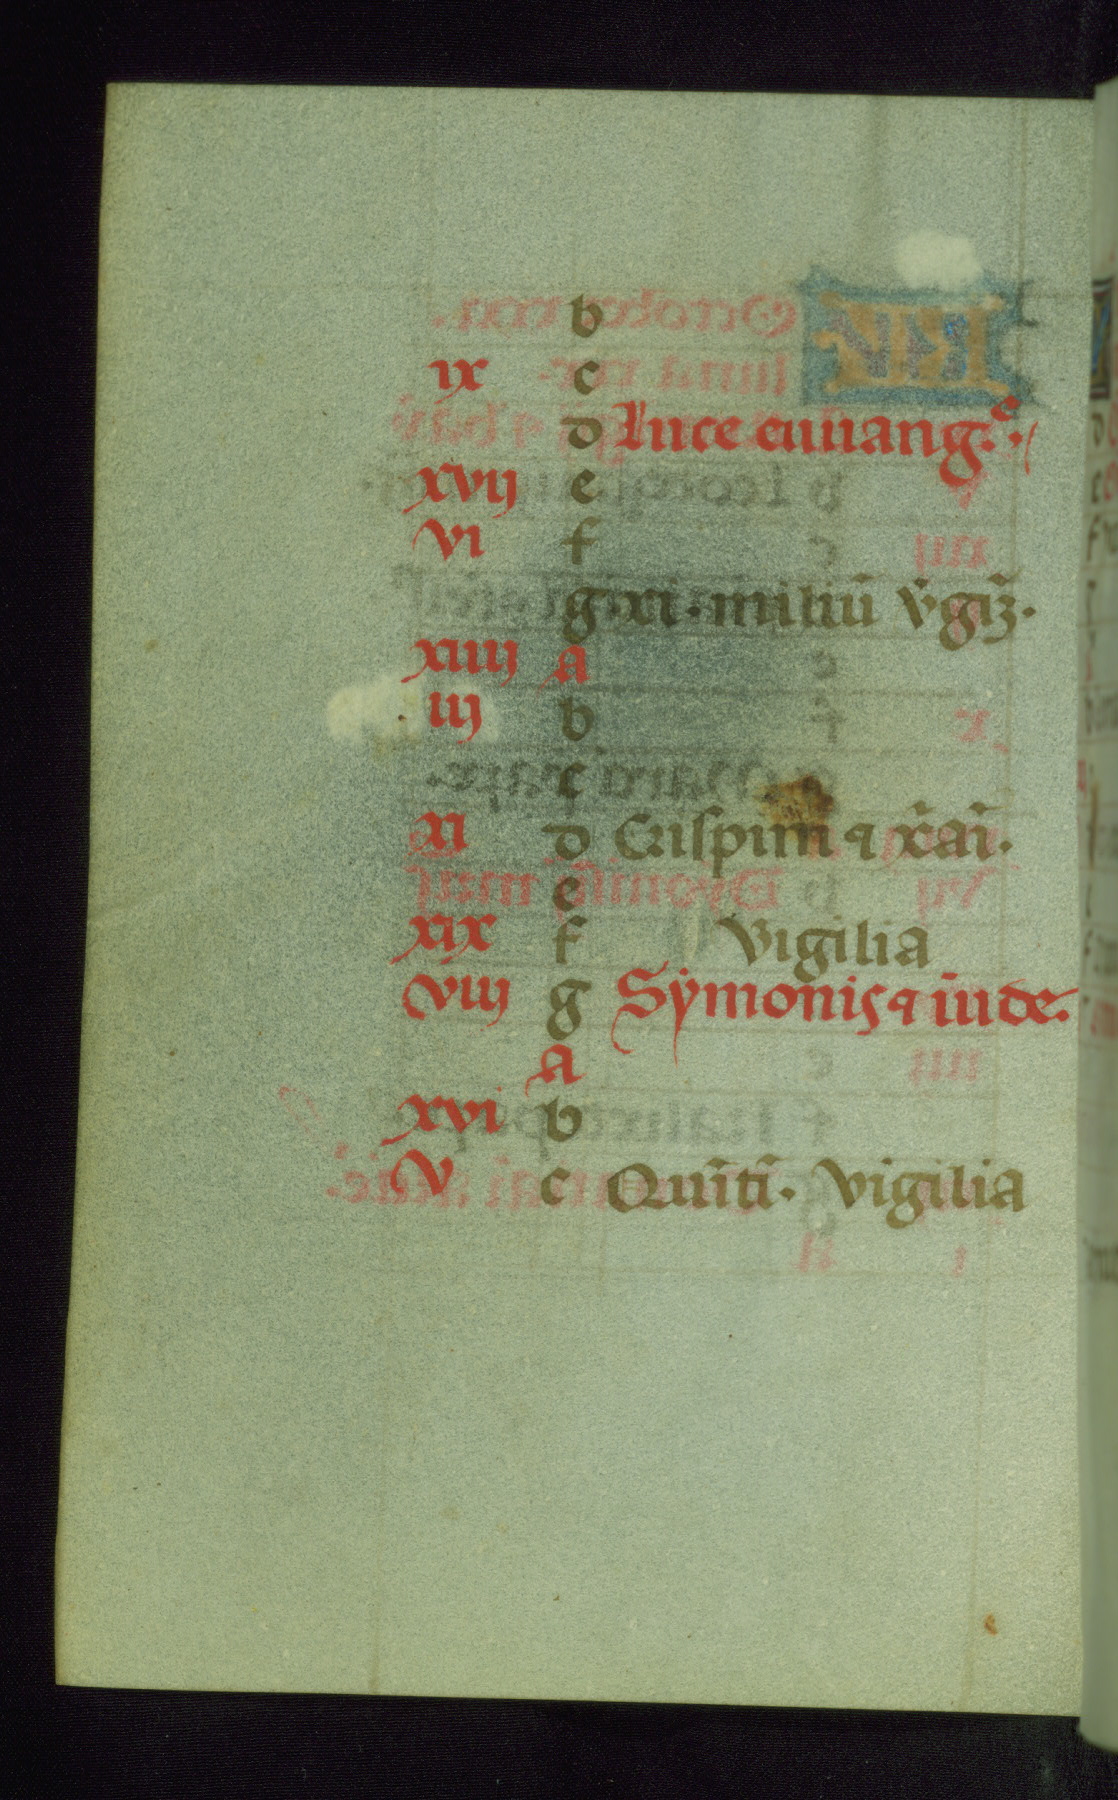 b
ix c
d Luce euuang.
xvij e
vi f
g xi. miliū v̄gīꝫ.
xiiij A
iij b
c
xi d Crispini ⁊ x̄ai̅.
e
xix f Vigilia
viij g Symonis ⁊ iude.
A
xvi b
v c Quīti̅. vigilia